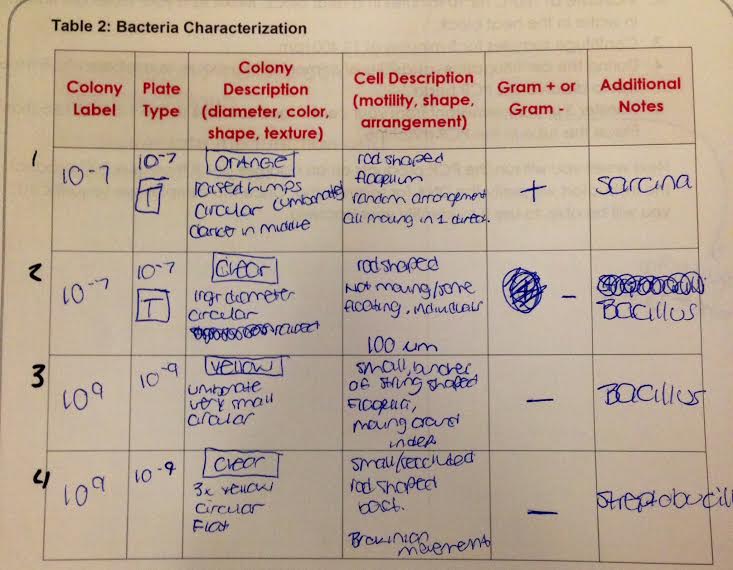 Table 2: Bacteria Characterization
Colony Label
Plate Type
Colony Description (diameter, color, shape, texture)
Cell Description (motility, shape, arrangement)
Gram + or Gram -
Additional Notes
1
10-7
10-7
T
ORANGE
raised humps
circular (umbonate)
darker in middle
rod shaped
flagellum
random arrangement
all moving in 1 direct.
+
Sarcina
2
10-7
10-7
T
Clear
diameter
circular
raised
rod shaped
Not moving/some
floating, individuals
100 um
-
Bacillus
3
109
10-9
yellow
umbonate
very small
circular
small,
of string shaped
Flagella,
moving around
indep.
-
Bacillus
4
109
10-9
clear
3x yellow
circular
Flat
small/
rod shaped
bact.
movement
-